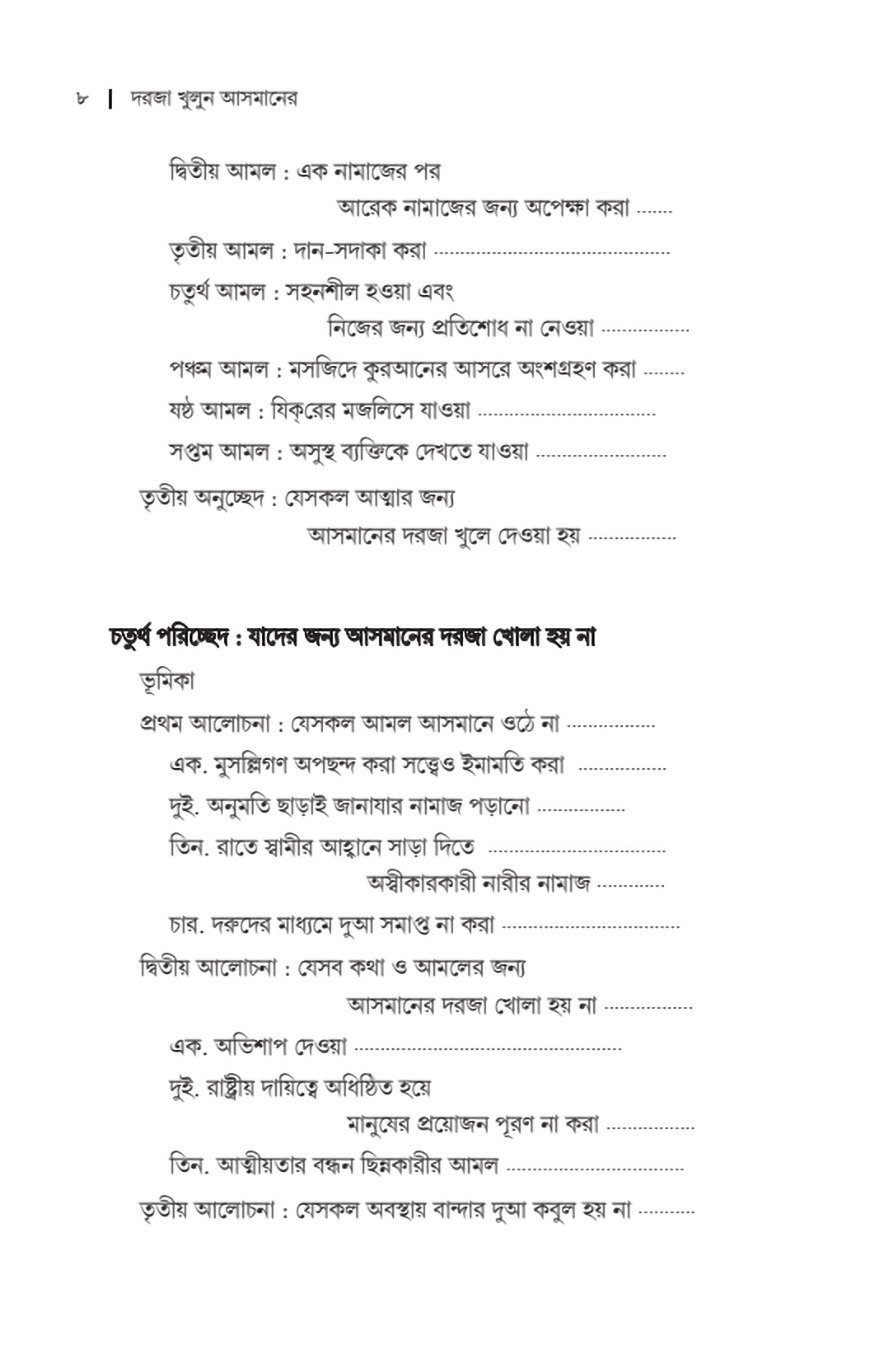 ৮ | দরজা খুলুন আসমানের
দ্বিতীয় আমল : এক নামাজের পর
আরেক নামাজের জন্য অপেক্ষা করা .......
তৃতীয় আমল : দান-সদাকা করা .............................................
চতুর্থ আমল : সহনশীল হওয়া এবং
নিজের জন্য প্রতিশোধ না নেওয়া .................
পঞ্চম আমল : মসজিদে কুরআনের আসরে অংশগ্রহণ করা ........
ষষ্ঠ আমল : যিক্‌রের মজলিসে যাওয়া ..................................
সপ্তম আমল : অসুস্থ ব্যক্তিকে দেখতে যাওয়া .........................
তৃতীয় অনুচ্ছেদ : যেসকল আত্মার জন্য
আসমানের দরজা খুলে দেওয়া হয় .................
চতুর্থ পরিচ্ছেদ : যাদের জন্য আসমানের দরজা খোলা হয় না
ভূমিকা
প্রথম আলোচনা : যেসকল আমল আসমানে ওঠে না .................
এক. মুসল্লিগণ অপছন্দ করা সত্ত্বেও ইমামতি করা .................
দুই. অনুমতি ছাড়াই জানাযার নামাজ পড়ানো .................
তিন. রাতে স্বামীর আহ্বানে সাড়া দিতে ..................................
অস্বীকারকারী নারীর নামাজ .............
চার. দরুদের মাধ্যমে দুআ সমাপ্ত না করা ..................................
দ্বিতীয় আলোচনা : যেসব কথা ও আমলের জন্য
আসমানের দরজা খোলা হয় না .................
এক. অভিশাপ দেওয়া ...................................................
দুই. রাষ্ট্রীয় দায়িত্বে অধিষ্ঠিত হয়ে
মানুষের প্রয়োজন পূরণ না করা .................
তিন. আত্মীয়তার বন্ধন ছিন্নকারীর আমল ..................................
তৃতীয় আলোচনা : যেসকল অবস্থায় বান্দার দুআ কবুল হয় না ...........